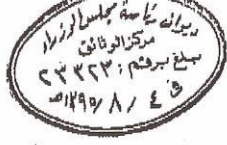 ديوان رئاسة مجلس الوزراء
مركز الوثائق
مبلغ برقم : ٢٣٣٢٣
في ٤ / ٨ / ١٣٩٥هـ